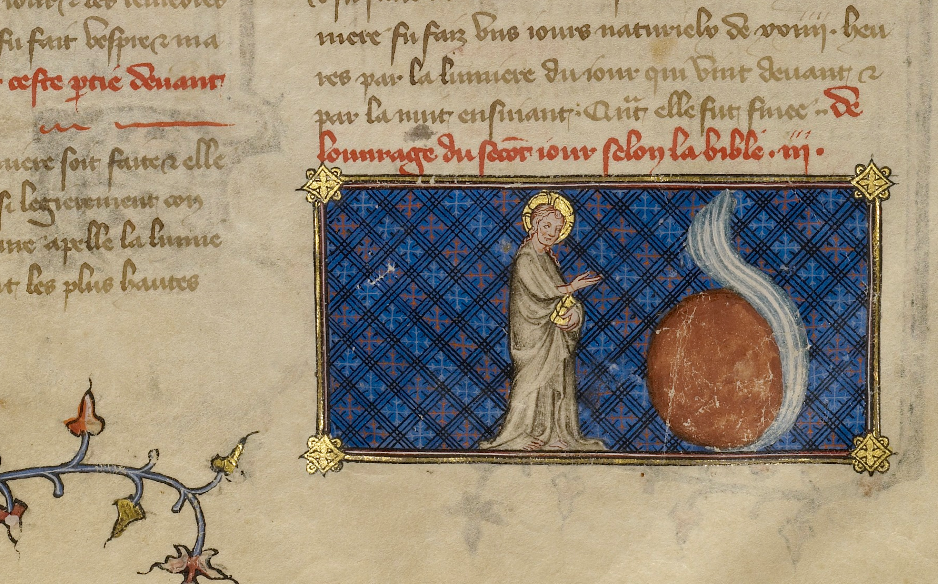 fu fait vespre ⁊ ma
ceste ptie deuant
miere soit faite ⁊ elle
si legierement con
apelle la lumie
les plus hautes
miere fu faiz vns iours naturielx de xxiiij. heu
res par la lumiere du iour qui vint deuant ⁊
par la nuit ensiuant. Et elle fut finee. de
louurage du secōt iour selon la bible .iij.